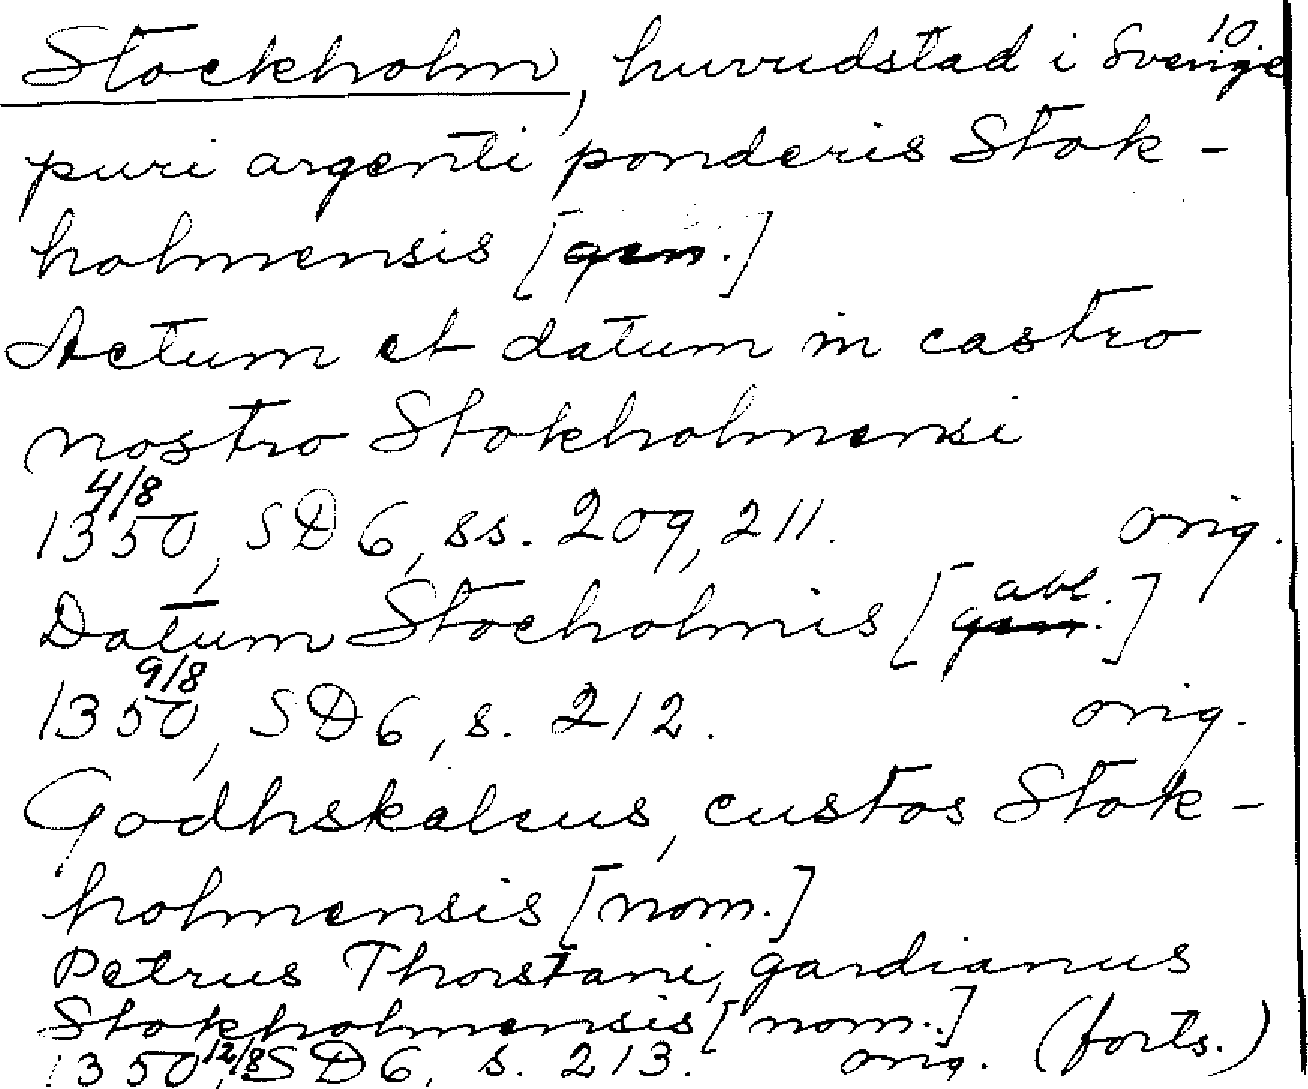 10.
Stockholm, huvudstad i Sverige
puri argenti ponderis Stok-
holmensis [gen.]
Actum et datum in castro
nostro Stokholmensi
4/8
1350, SD 6, ss. 209, 211. orig.
abl.
Datum Stocholmis [gen.]
9/8
1350, SD 6, s. 212. orig.
Godhskalcus, custos Stok-
holmensis [nom.]
Petrus Thorstani, gardianus
Stokholmensis [nom.] (forts.)
1350 12/8, SD 6, s. 213. orig.